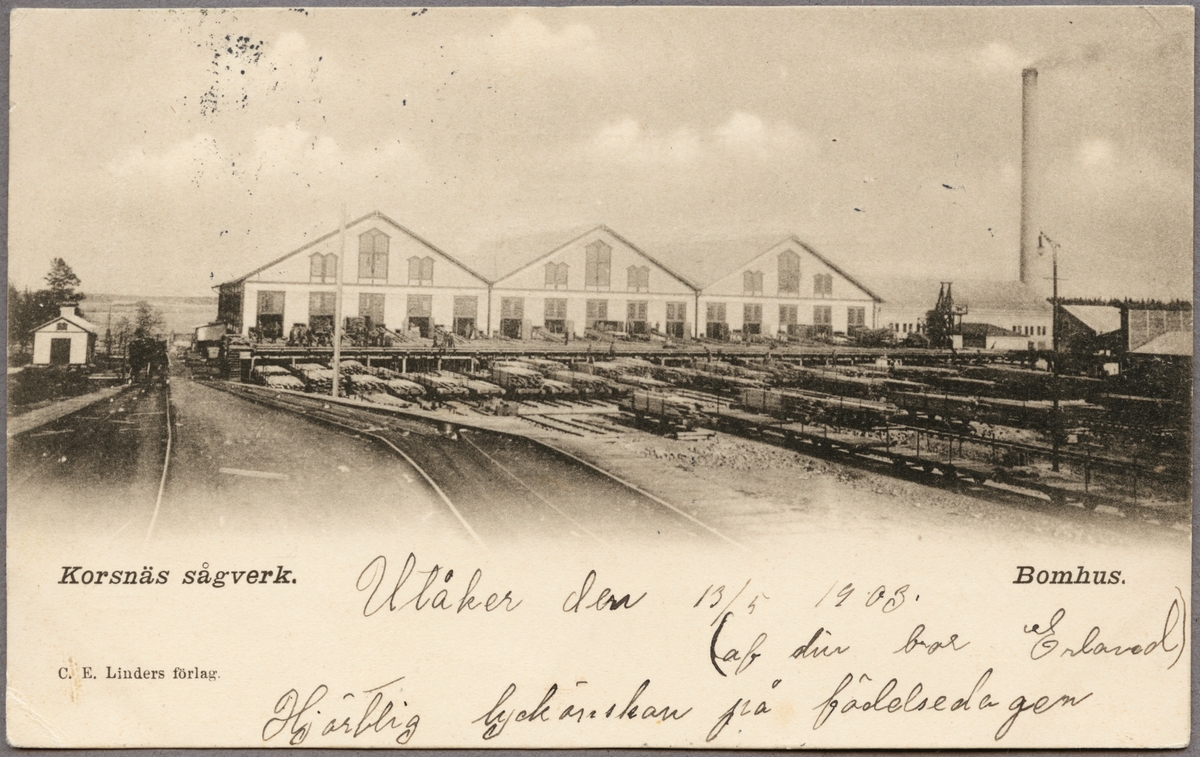 Korsnäs sågverk.
Bomhus.
Utåker den 13/5 1903.
(af din bror Erland)
C. E. Linders förlag.
Hjärtlig lyckönskan på födelsedagen